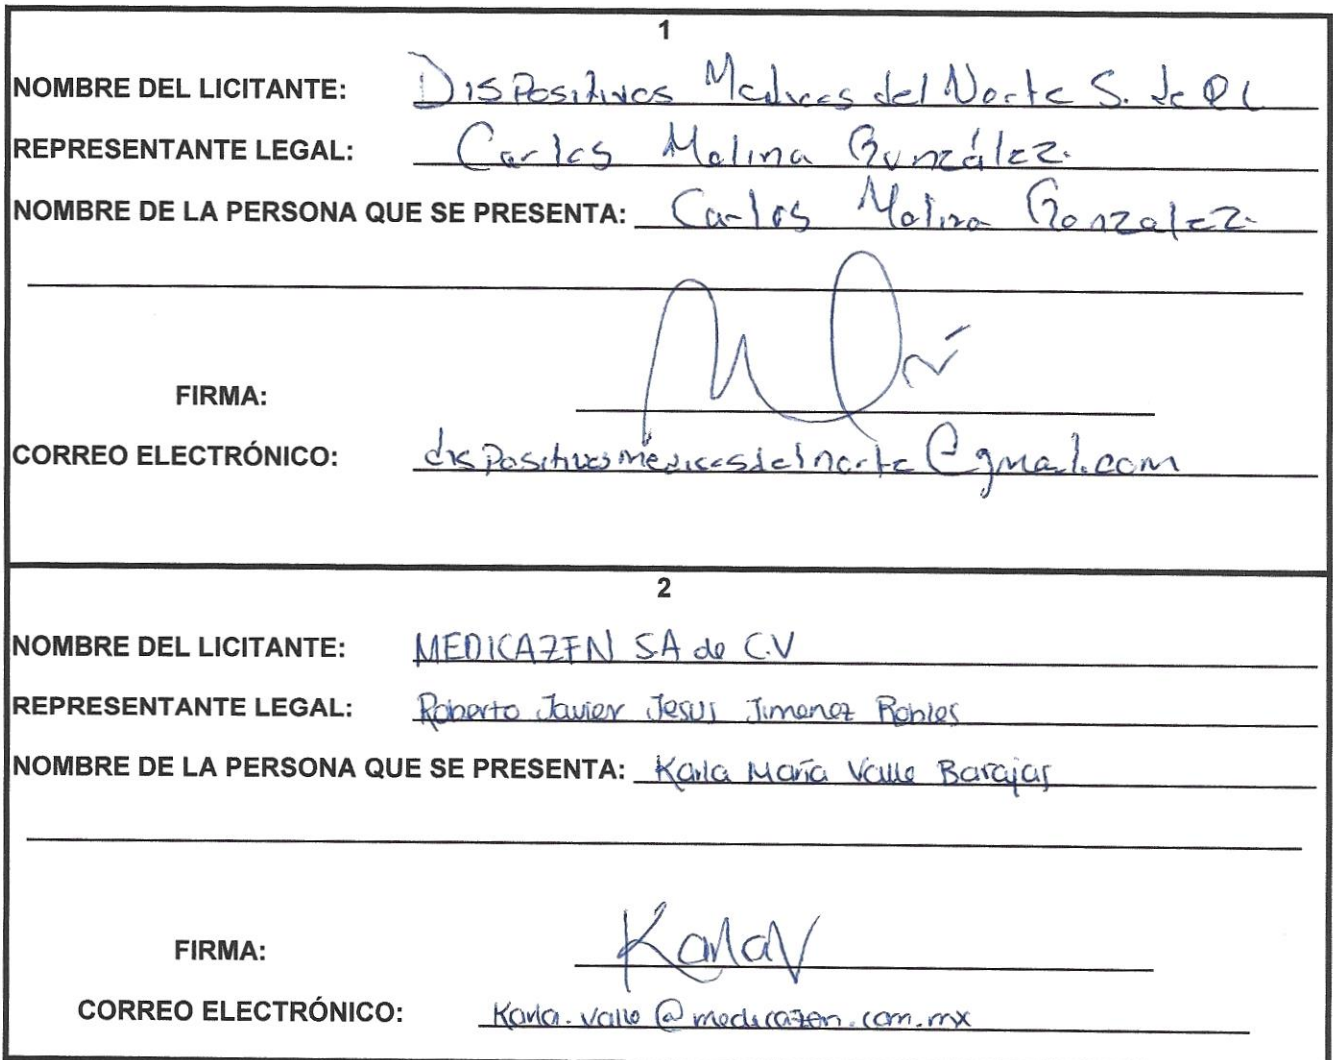 1
NOMBRE DEL LICITANTE: Dispositivos Medicos del Norte S. de RL
REPRESENTANTE LEGAL: Carlos Molina González.
NOMBRE DE LA PERSONA QUE SE PRESENTA: Carlos Molina Gonzalez.
FIRMA:
CORREO ELECTRÓNICO: dispositivosmédicosdelnorte@gmail.com
2
NOMBRE DEL LICITANTE: MEDICAZEN S.A de C.V
REPRESENTANTE LEGAL: Roberto Javier Jesus Jimenez Robles
NOMBRE DE LA PERSONA QUE SE PRESENTA: Karla María Valle Barajas
FIRMA: KarlaV
CORREO ELECTRÓNICO: Karla.valle@medicazen.com.mx